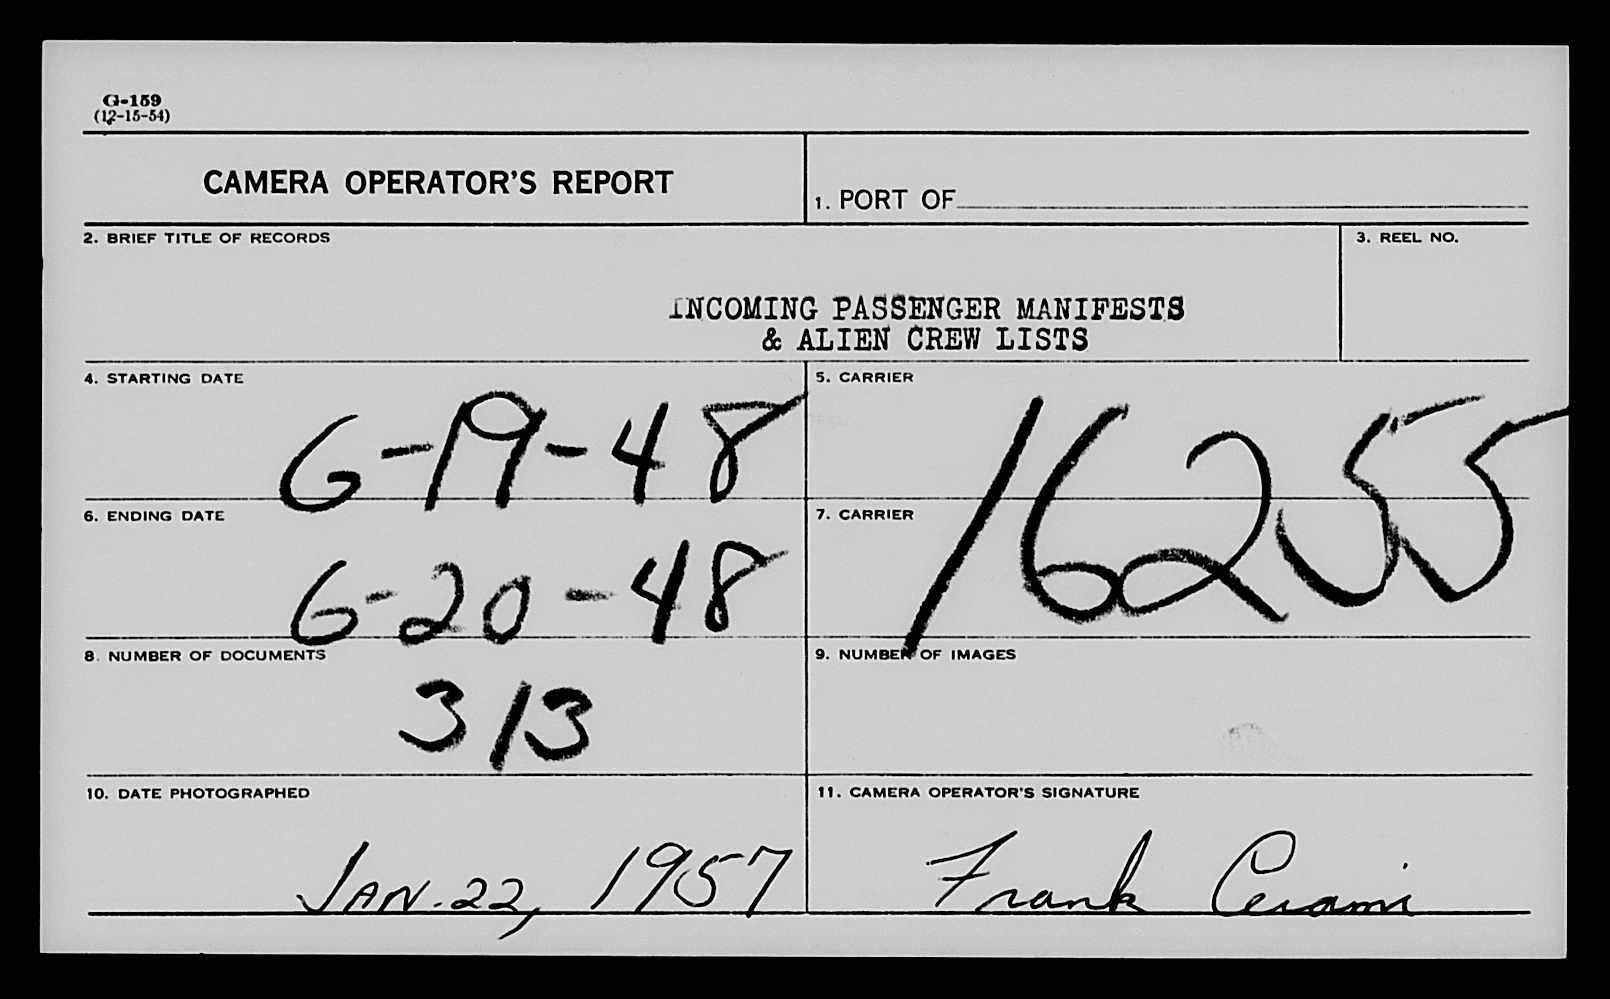 G-159
(12-15-54)
CAMERA OPERATOR'S REPORT
1. PORT OF
2. BRIEF TITLE OF RECORDS
3. REEL NO.
INCOMING PASSENGER MANIFESTS
& ALIEN CREW LISTS
4. STARTING DATE
6-19-48
5. CARRIER
16255
6. ENDING DATE
6-20-48
7. CARRIER
8. NUMBER OF DOCUMENTS
313
9. NUMBER OF IMAGES
10. DATE PHOTOGRAPHED
JAN. 22, 1957
11. CAMERA OPERATOR'S SIGNATURE
Frank Cerami